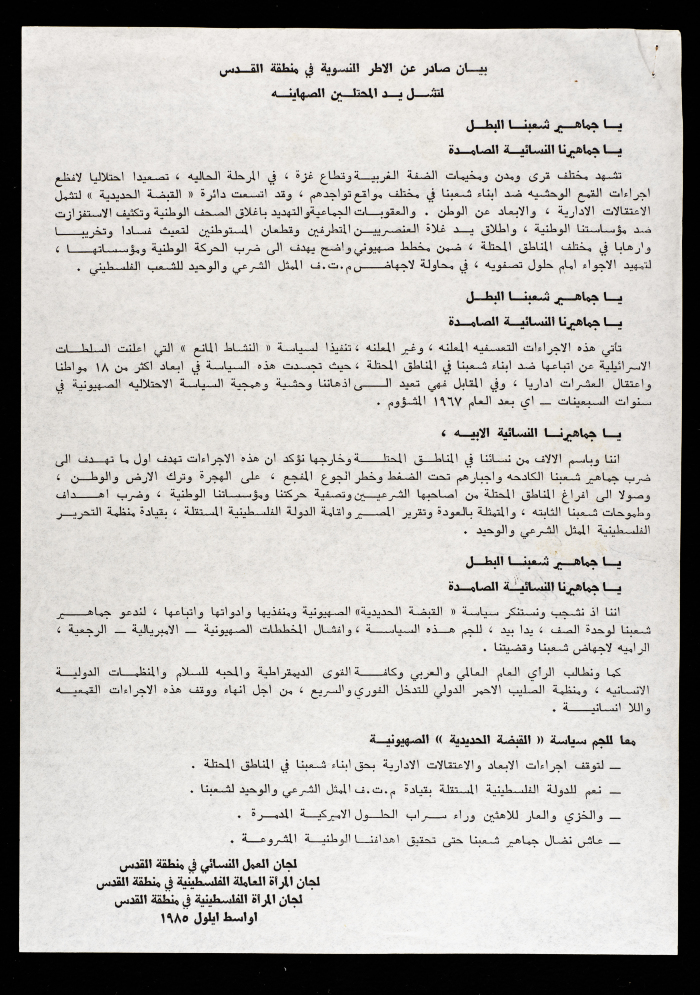 بيـان صادر عن الاطر النسوية في منطقة القـدس
لتشل يـد المحتلـين الصهاينـه
يـا جماهيـر شعبنـا البطـل
يـا جماهيرنا النسائيـة الصامـدة
تشهد مختلف قرى ومدن ومخيمات الضفة الغربيـة وقطاع غزة ، في المرحلة الحاليه ، تصعيدا احتلاليا لافظع
اجراءات القمع الوحشيه ضد ابناء شعبنا في مختلف مواقع تواجدهم ، وقد اتسعت دائرة « القبضة الحديدية » لتشمل
الاعتقالات الادارية ، والابعاد عن الوطن . والعقوبـات الجماعية والتهديد باغلاق الصحف الوطنية وتكثيف الاستفزازت
ضد مؤسساتنا الوطنية ، واطلاق يـد غلاة العنصرييـن المتطرفين وقطعان المستوطنين لتعيث فسادا وتخريبـا
وارهابا في مختلف المناطق المحتلة ، ضمن مخطط صهيوني واضح يهدف الى ضرب الحركة الوطنية ومؤسساتهـا ،
لتمهيد الاجواء امام حلول تصفويه ، في محاولة لاجهاض م.ت.ف الممثل الشرعي والوحيد للشعب الفلسطيني .
يـا جماهيـر شعبنـا البطـل
يـا جماهيرنا النسائيـة الصامـدة
تأتي هذه الاجراءات التعسفيه المعلنه ، وغير المعلنه ، تنفيذا لسياسة « النشاط المانع » التي اعلنت السلطـات
الاسرائيلية عن اتباعها ضد ابناء شعبنا في المناطق المحتلة ، حيث تجسدت هذه السياسة في ابعاد اكثر من ١٨ مواطنا
واعتقال العشرات اداريا ، وفي المقابل فهي تعيد الـى اذهاننا وحشية وهمجية السياسة الاحتلاليه الصهيونية في
سنوات السبعينات ـ اي بعد العام ١٩٦٧ المشؤوم .
يـا جماهيرنـا النسائية الابيـه ،
اننا وباسم الالاف من نسائنا في المناطق المحتلـة وخارجها نؤكد ان هذه الاجراءات تهدف اول ما تهـدف الى
ضرب جماهير شعبنا الكادحه واجبارهم تحت الضغط وخطر الجوع المفجع ، على الهجرة وترك الارض والوطـن ،
وصولا الى افراغ المناطق المحتلة من اصاحبها الشرعييـن وتصفية حركتنا ومؤسساتنا الوطنية ، وضرب اهـداف
وطموحات شعبنا الثابته ، والمتمثلة بالعودة وتقرير المصير واقامة الدولة الفلسطينية المستقلة ، بقيادة منظمة التحرير
الفلسطينية الممثل الشرعي والوحيد .
يـا جماهيـر شعبنـا البطـل
يـا جماهيرنا النسائيـة الصامـدة
اننا اذ نشجب ونستنكر سياسة « القبضة الحديدية» الصهيونية ومنفذيها وادواتها واتباعها ، لندعو جماهيـر
شعبنا لوحدة الصف ، يدا بيد ، للجم هـذه السياسـة ، وافشال المخططات الصهيونية ـ الامبريالية ـ الرجعية ،
الراميه لاجهاض شعبنا وقضيتنا .
كما ونطالب الراي العام العالمي والعربي وكافـة القوى الديمقراطية والمحبه للسلام والمنظمات الدوليـة
الانسانيه ، ومنظمة الصليب الاحمر الدولي للتدخل الفوري والسريع ، من اجل انهاء ووقف هذه الاجراءات القمعيـه
واللا انسانيـة .
معـا للجم سياسة « القبضة الحديدية » الصهيونيـة
ـ لتوقف اجراءات الابعاد والاعتقالات الادارية بحق ابناء شعبنا في المناطق المحتلة .
ـ نعم للدولة الفلسطينية المستقلة بقيادة م.ت.ف الممثل الشرعي والوحيد لشعبنا .
ـ والخزي والعار للاهثين وراء سراب الحلـول الاميركية المدمـرة .
ـ عاش نضال جماهير شعبنا حتى تحقيق اهدافنـا الوطنيـة المشروعـة .
لجان العمل النسائي في منطقة القدس
لجان المرأة العاملة الفلسطينية في منطقة القدس
لجان المرأة الفلسطينية في منطقة القدس
اواسط ايلول ١٩٨٥